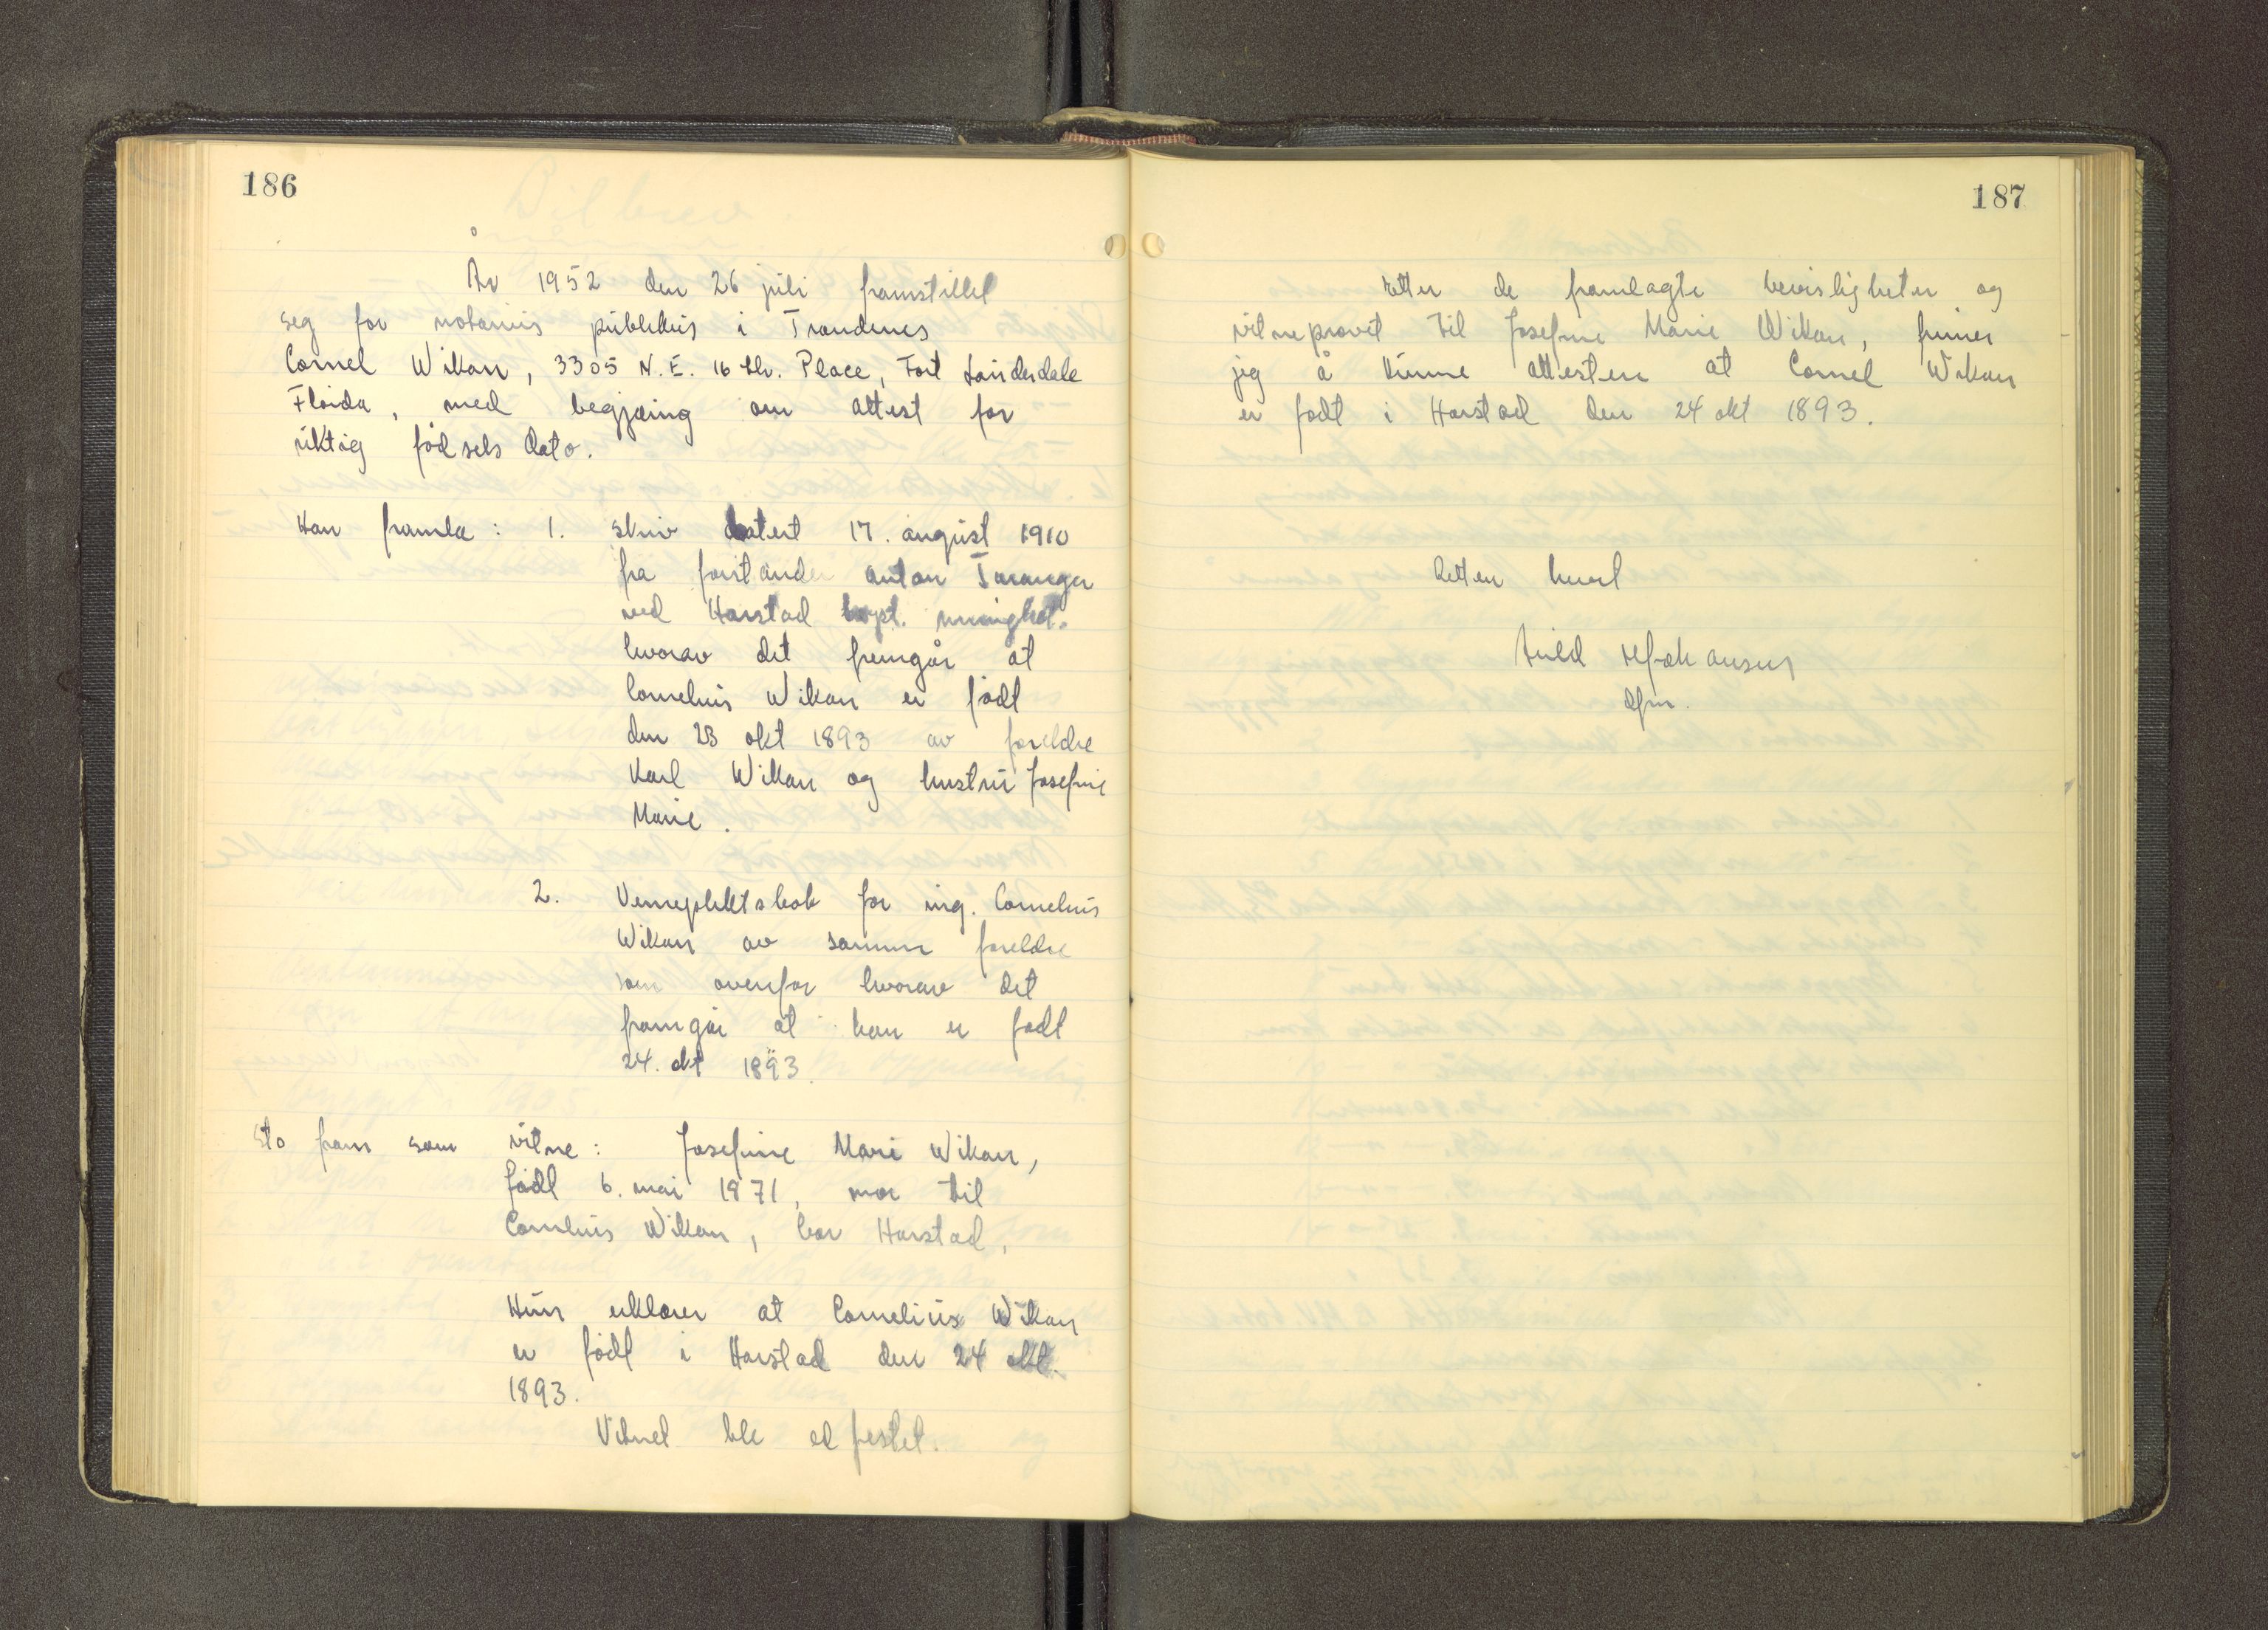 186
År 1952 den 26 juli framstillet
seg for notarius publikus i Trondenes
Cornel Wikan, 3305 N.E. 16 th. Place, Fort Lauderdale
Florida, med begjæring om attest for
riktig fødselsdato.
Han framla: 1. skriv datert 17. august 1910
fra forstander Anton Taranger
ved Harstad bapt. menighet.
hvorav det fremgår at
Cornelius Wikan er født
den 23 okt 1893 av foreldre
Karl Wikan og hustru Josefine
Marie.
2. Verneplektsbok for ing. Cornelius
Wikan av samme foreldre
som ovenfor hvorav det
framgår at han er født
24. okt 1893.
Sto fram som vitne: Josefine Marie Wikan,
født 6. mai 1871, mor til
Cornelius Wikan, bor Harstad,
Hun erklærer at Cornelius Wikan
er født i Harstad den 24 okt.
1893.
Vitnet ble edfestet.
187
Etter de framlagte bevisligheter og
vitneprovet til Josefine Marie Wikan, finner
jeg å kunne attestere at Cornel Wikan
er født i Harstad den 24 okt 1893.
Retten hevet
dfm.